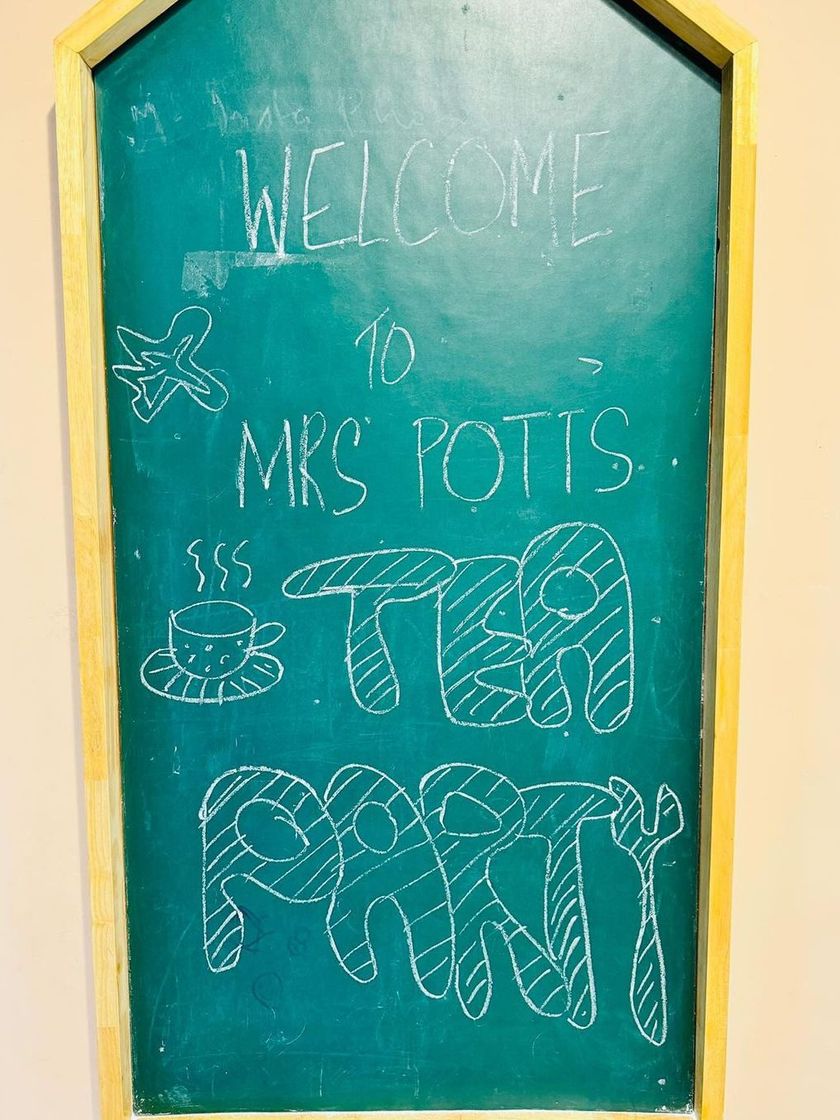 WELCOME
TO
MRS POTTS
TEA
PARTY